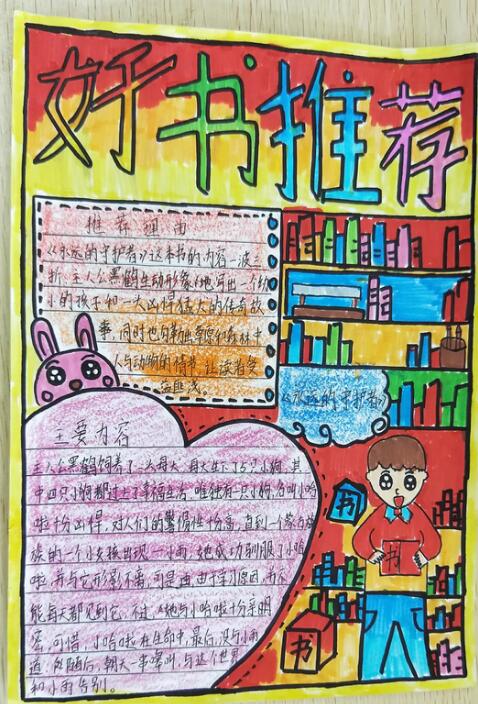 好书推荐
推荐理由
《永远的守护者》这本书的内容一波三
折,主人公黑鹤生动形象地写出一个幼
小的孩子和一犬凶悍猛犬的传奇故
事,同时也勾勒出草原和森林中
人与动物的情节,让读者受
益匪浅。
《永远的守护者》
主要内容
主人公黑鹤饲养了一头母犬,母犬生下了5只小狗,其
中四只小狗都过上了幸福生活,唯独有一只小狗,名叫小哈
啦十分凶悍,对人们的警惕性十分高,直到一个蒙古
族的一个小女孩出现,小雨,她成功驯服了小哈
啦,并与它形影不离,可是雨由于学习原因,并不
能每天都见到它,不过,她与小哈啦十分亲明
密,可惜,小哈啦在生命中最后,没与小雨
道,然随后,朝天一声嚎叫,与这个世界
和小雨告别。
书
书
书